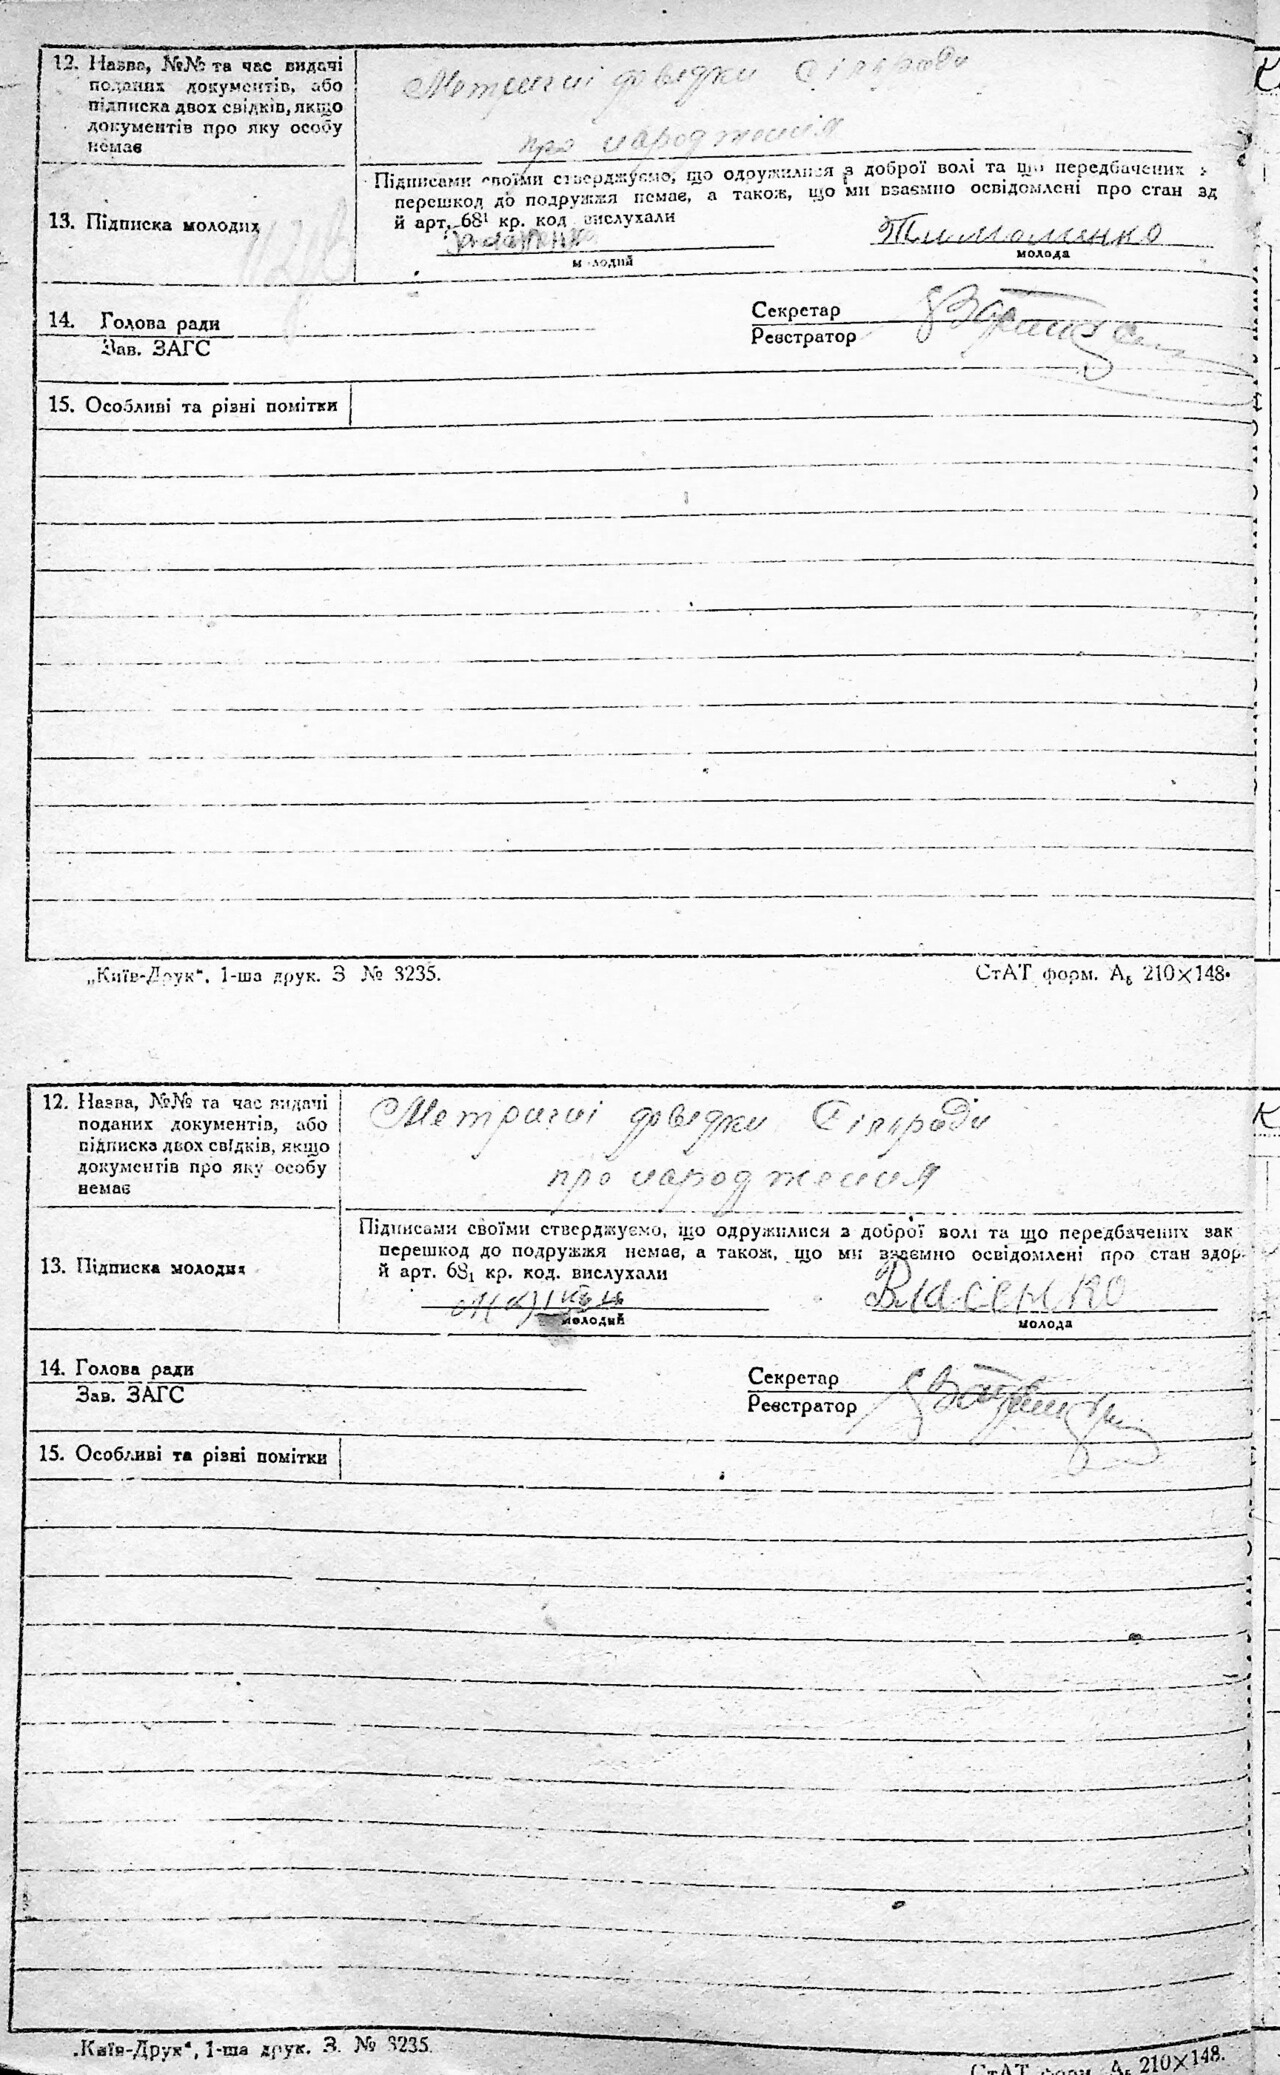 12. Назва, №№ та час видачі
поданих документів, або
підписка двох свідків, якщо
документів про яку особу
немає
Метричні довідки Сільради
про народження
13. Підписка молодих
Підписами своїми стверджуємо, що одружилися з доброї волі та що передбачених з
перешкод до подружжя немає, а також, що ми взаємно освідомлені про стан зд
й арт. 68¹ кр. код вислухали
Тимошенко
молодий
молода
14. Голова ради
Зав. ЗАГС
Секретар
Реєстратор
15. Особливі та різні помітки
„Київ-Друк“, 1-ша друк. З № 3235.
СтАТ форм. А₅ 210×148.
12. Назва, №№ та час видачі
поданих документів, або
підписка двох свідків, якщо
документів про яку особу
немає
Метричні довідки Сільради
про народження
13. Підписка молодих
Підписами своїми стверджуємо, що одружилися з доброї волі та що передбачених зак
перешкод до подружжя немає, а також, що ми взаємно освідомлені про стан здор
й арт. 68₁ кр. код. вислухали
Власенко
молодий
молода
14. Голова ради
Зав. ЗАГС
Секретар
Реєстратор
15. Особливі та різні помітки
„Київ-Друк“, 1-ша друк. З. № 3235.
СтАТ форм. А₅ 210×148.